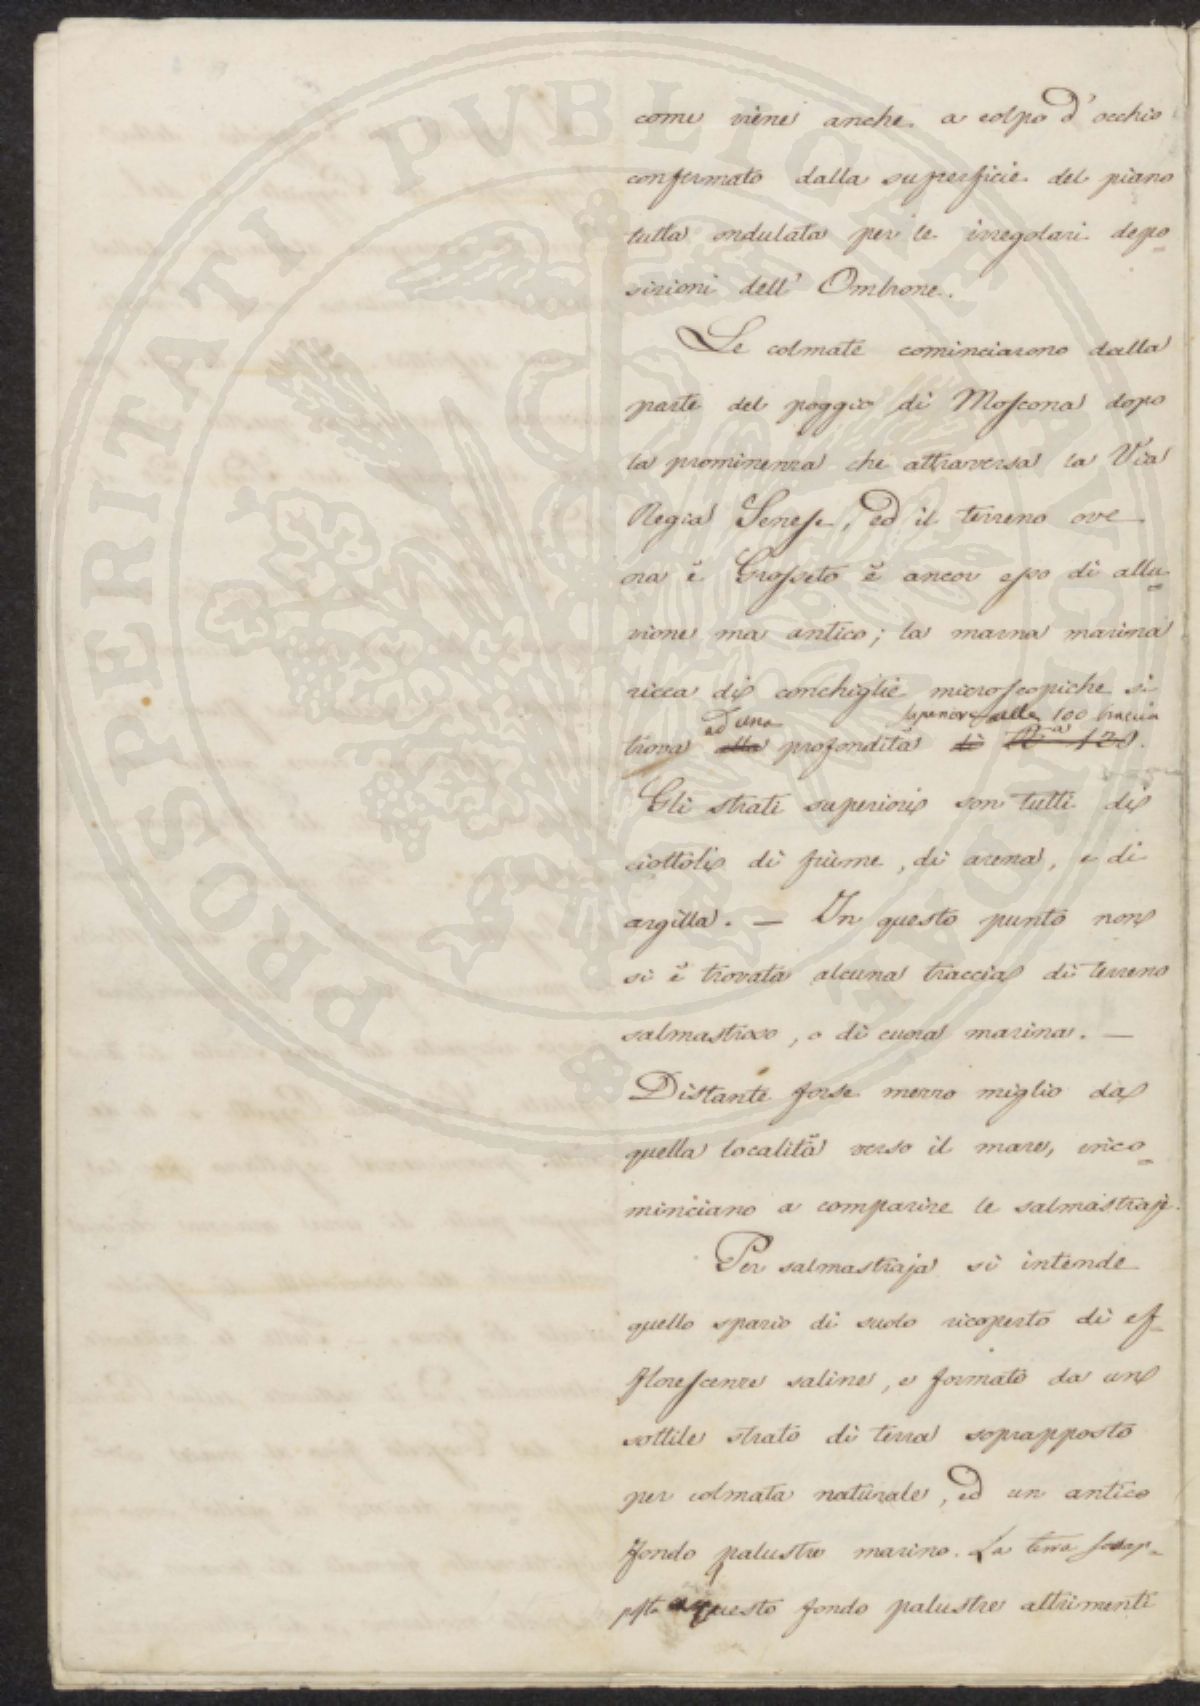 come viene anche a colpo d'occhio
confermato dalla superficie del piano
tutta ondulata per le irregolari depo=
sizioni dell'Ombrone.
Le colmate cominciarono dalla
parte del poggio di Moscona dopo
la prominenza che attraversa la Via
Regia Senese, ed il terreno ove
ora è Grosseto è ancor esso di allu=
vione ma antico; la marna marina
ricca di conchiglie microscopiche si
ad una superiore alle 100 braccia
trova alla profondità di B.a 120.
Gli strati superiori son tutti di
ciottoli di fiume, di arena, e di
argilla. — In questo punto non
si è trovata alcuna traccia di terreno
salmastroso, o di cuora marina. —
Distante forse mezzo miglio da
quella località verso il mare, inco=
minciano a comparire le salmastraje.
Per salmastraja si intende
quello spazio di suolo ricoperto di ef=
florescenze saline, e formato da un
sottile strato di terra soprapposto
per colmata naturale, ed un antico
fondo palustre marino. La terra sovrap=
psta a questo fondo palustre altrimenti
PROSPERITATI PVBLICAE AVGENDAE